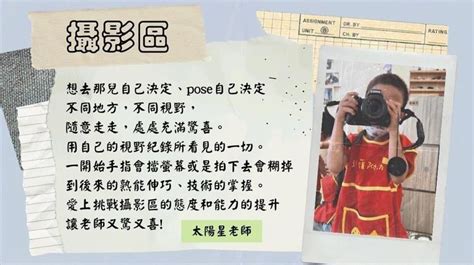 攝影區
ASSIGNMENT
UNIT
DR. BY
CH. BY
RATING
想去那兒自己決定、pose自己決定
不同地方，不同視野，
隨意走走，處處充滿驚喜。
用自己的視野紀錄所看見的一切。
一開始手指會擋螢幕或是拍下去會糊掉
到後來的熟能伸巧、技術的掌握。
愛上挑戰攝影區的態度和能力的提升
讓老師又驚又喜!
太陽星老師